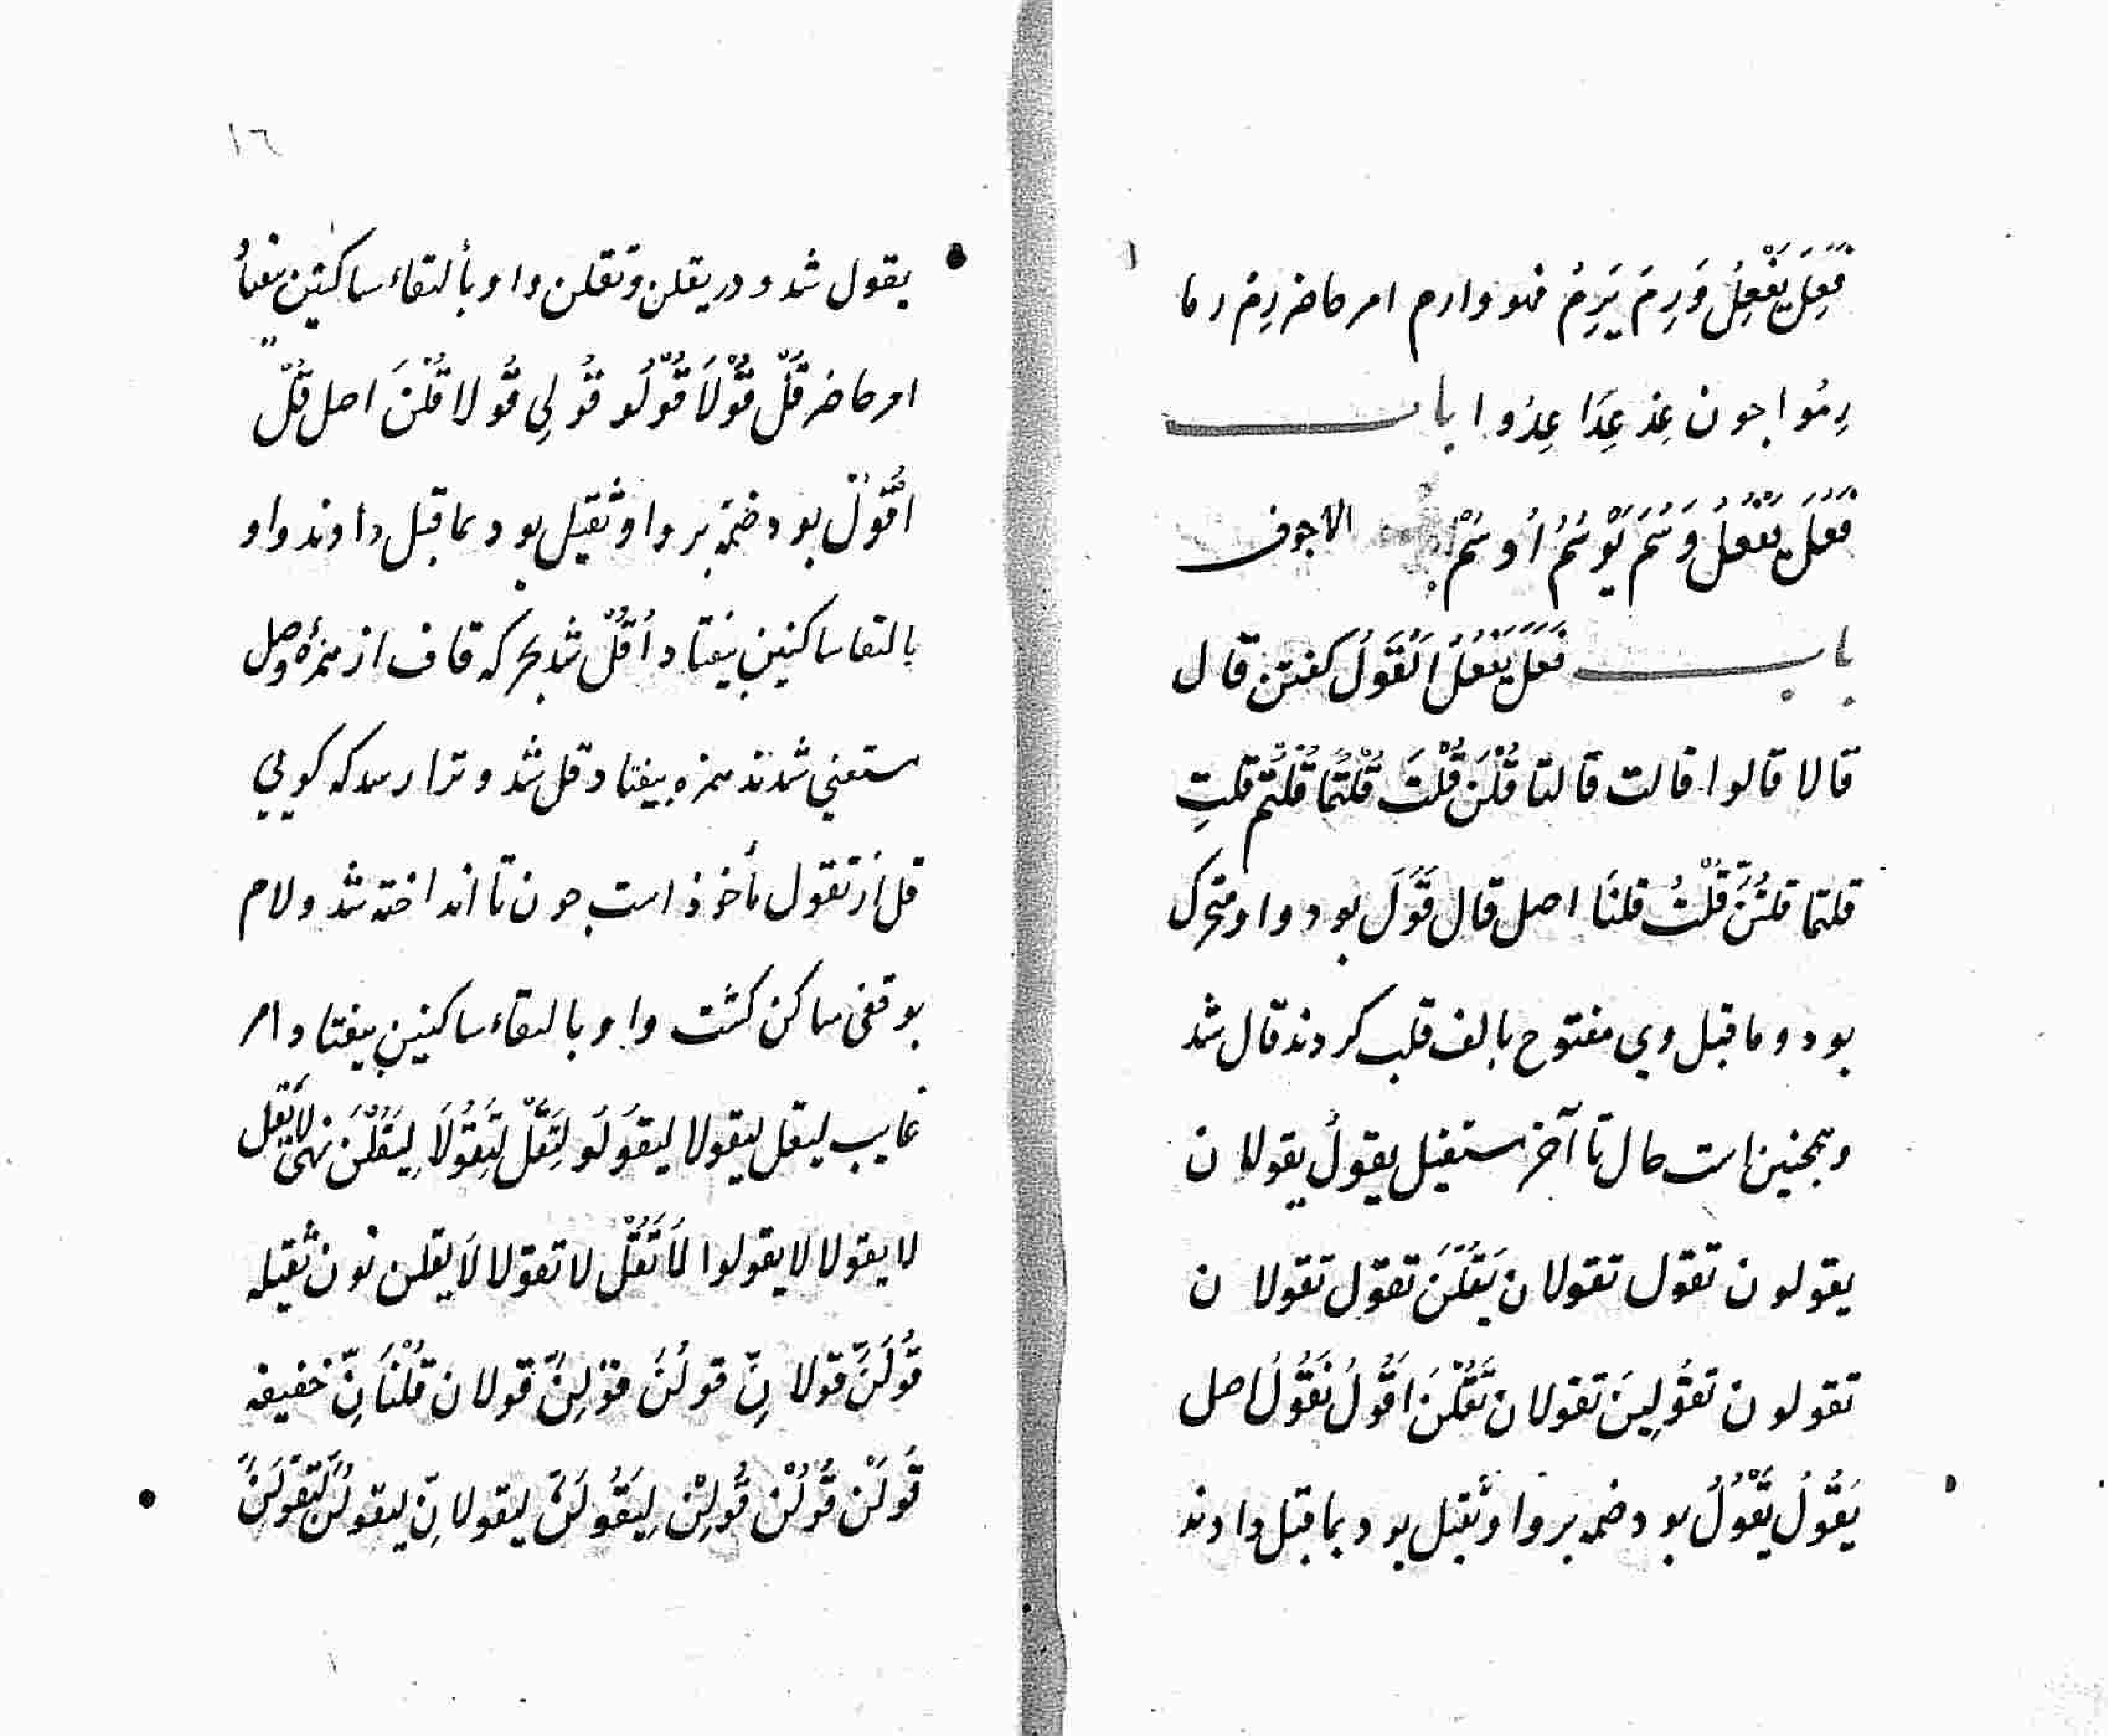 فَعِلَ يَفْعِلُ وَرِمَ يَرِمُ فهو وارم امر حاضر رِمْ رما
رِمُوا چون عِدْ عِدَا عِدُوا باب
فَعُلَ يَفْعُلُ وَسُمَ يَوْسُمُ اُوسُمْ الاجوف
باب فَعَلَ يَفْعُلُ اَلْقَوْلُ كفتن قال
قالا قالوا قالت قالتا قُلْنَ قُلْتَ قُلْتُمَا قُلْتُمْ قلتِ
قلتما قلتُنَّ قُلْتُ قلنَا اصل قال قَوَلَ بود واو متحرك
بود و ما قبل وي مفتوح بالف قلب كردند قال شد
وهمچنین است حال تا آخر مستقبل يقولُ يقولان
يقولون تقول تقولان يَقُلْنَ تقول تقولان
تقولون تقُولِينَ تقولان تَقُلْنَ اَقُولُ نَقُولُ اصل
يَقُولُ يَقْوُلُ بود ضمه بر واو ثقيل بود بما قبل دادند
١٦
يقول شد و در يقلن و تقلن واو بألتقاء ساكنين بيفتاد
امر حاضر قُلْ قُوْلَا قُوْلُو قُولِي قُولا قُلْنَ اصل قُلْ
اُقْوُلْ بود ضمّه بر واو ثقيل بود بما قبل دادند واو
بالتقا ساكنين بيفتاد اُقُلْ شد بحركه قاف از همزهٔ وصل
مستغني شدند همزه بيفتاد قل شد و ترا رسد كه كويي
قل از تقول مأخوذ است چون تا انداخته شد ولام
بوقفى ساكن كشت واو بالتقاء ساكنين بيفتاد امر
غايب ليقل ليقولا ليقُولُو لِتَقُلْ لِتَقُولَا لِيَقُلْنَ نهى لا يَقُل
لا يقولا لا يقولوا لَا تَقُلْ لا تقولا لَا يقلن نون ثقيله
قُولَنَّ قولانِّ قولُنَّ قولِنَّ قولان قُلْنَانِّ خفيفه
قُولَنْ قُولُنْ قُولِنْ لِيَقُولَنَّ ليقولانِّ ليقولُنَّ لِتَقُولَنَّ